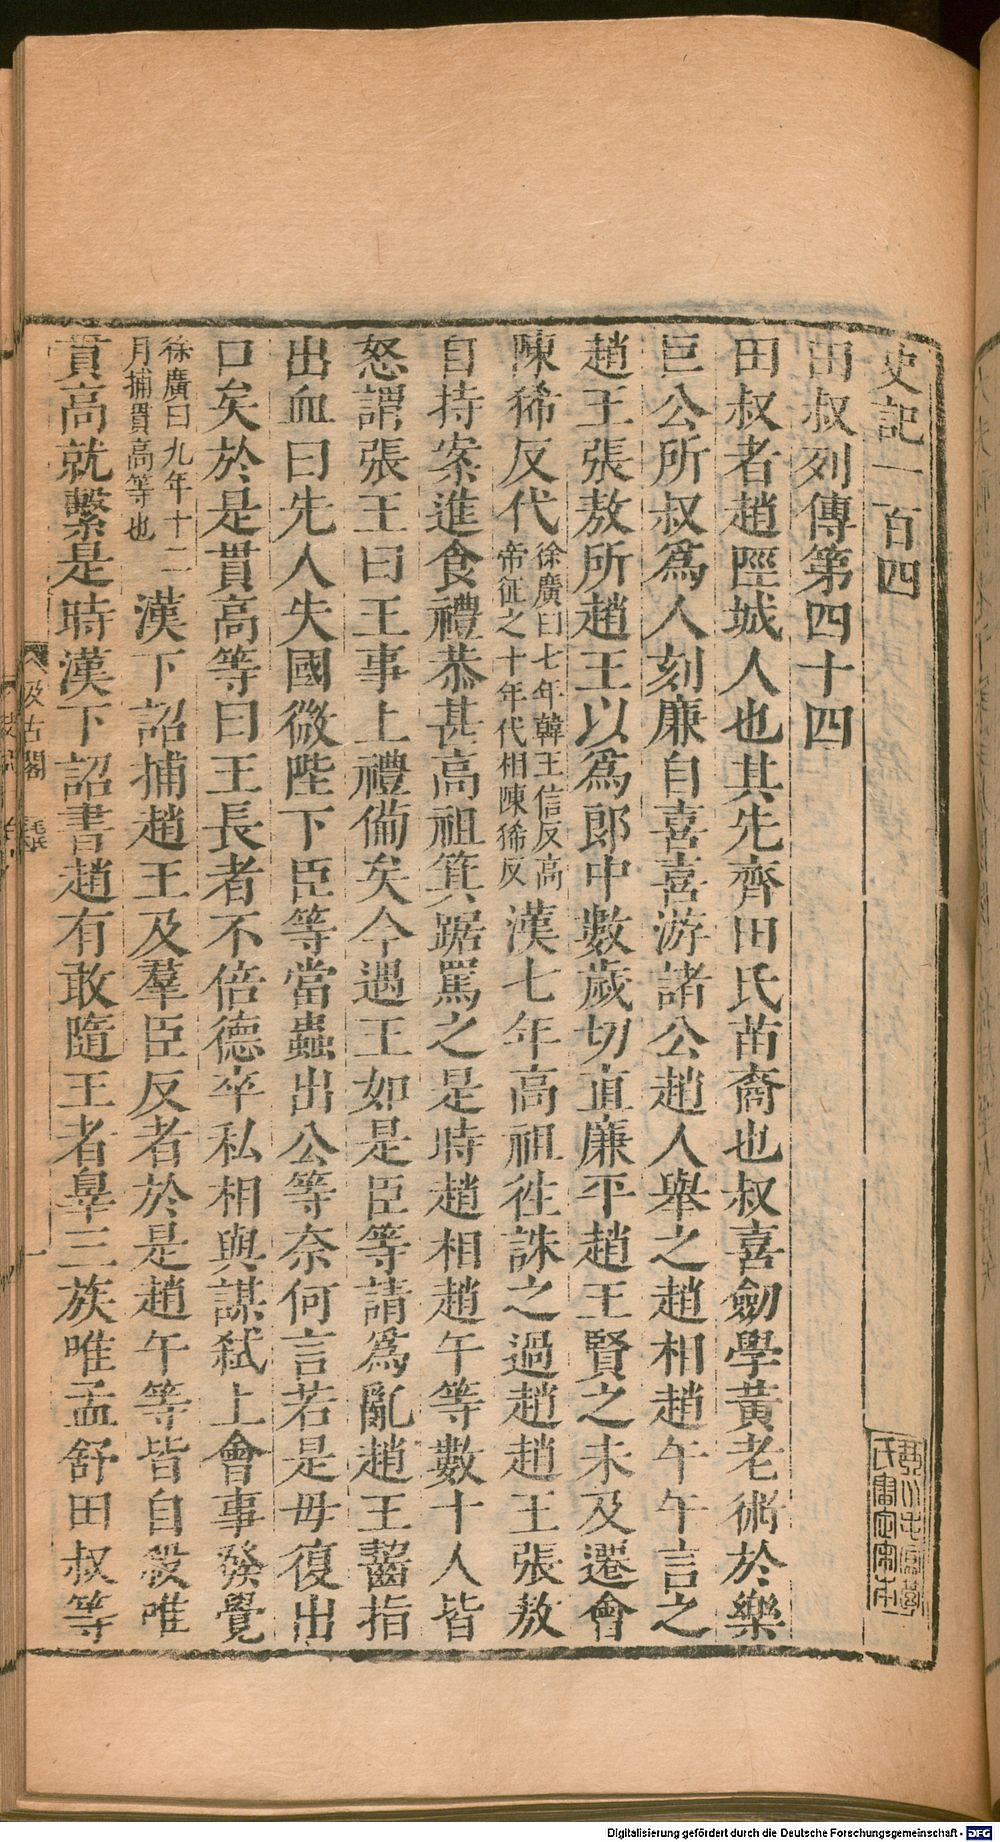 史記一百四
田叔列傳第四十四
田叔者趙陘城人也其先齊田氏苗裔也叔喜劒學黃老術於樂
巨公所叔爲人刻廉自喜喜游諸公趙人舉之趙相趙午午言之
趙王張敖所趙王以爲郎中數歲切直廉平趙王賢之未及遷會
陳豨反代
徐廣曰七年韓王信反高
帝征之十年代相陳豨反
漢七年高祖徃誅之過趙趙王張敖
自持案進食禮恭甚高祖箕踞罵之是時趙相趙午等數十人皆
怒謂張王曰王事上禮僃矣今遇王如是臣等請爲亂趙王齧指
出血曰先人失國微陛下臣等當蟲出公等奈何言若是毋復出
口矣於是貫高等曰王長者不倍德卒私相與謀弑上會事發覺
徐廣曰九年十二
月捕貫高等也
漢下詔捕趙王及羣臣反者於是趙午等皆自殺唯
貫高就繫是時漢下詔書趙有敢隨王者辠三族唯孟舒田叔等
汲古閣
毛氏
一
Digitalisierung gefördert durch die Deutsche Forschungsgemeinschaft - DFG